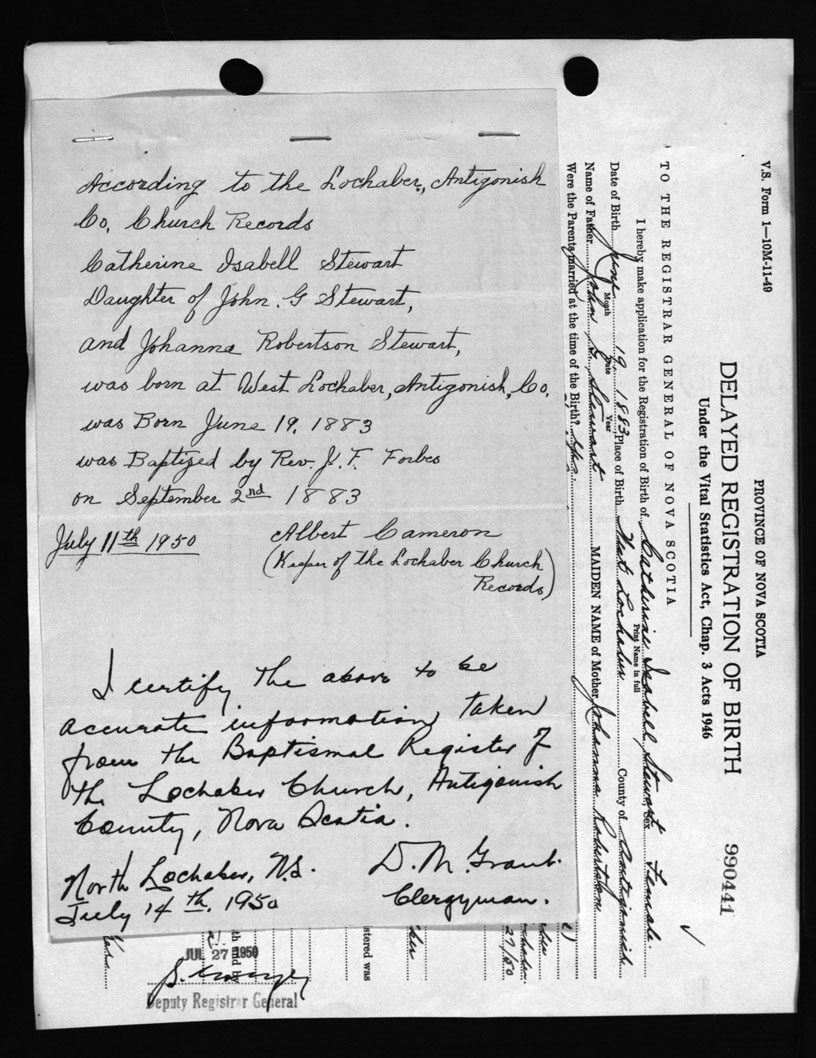 According to the Lochaber, Antigonish
Co. Church Records
Catherine Isabell Stewart
Daughter of John. G Stewart,
and Johanna Robertson Stewart,
was born at West Lochaber, Antigonish, Co.
was Born June 19, 1883
was Baptized by Rev. J. F. Forbes
on September 2nd 1883
July 11th 1950 Albert Cameron
(Keeper of the Lochaber Church
Records)
I certify the above to be
accurate information taken
from the Baptismal Register of
the Lochaber Church, Antigonish
County, Nova Scotia.
North Lochaber, N.S. D. M. Grant.
July 14th, 1950 Clergyman.
V.S. Form 1—10M-11-49
PROVINCE OF NOVA SCOTIA
DELAYED REGISTRATION OF BIRTH 990441
Under the Vital Statistics Act, Chap. 3 Acts 1946
TO THE REGISTRAR GENERAL OF NOVA SCOTIA
I hereby make application for the Registration of Birth of Catherine Isabell Stewart Sex Female.
Print Name in full
Date of Birth June 19, 1883 Place of Birth West Lochaber County of Antigonish
Month Date Year
Name of Father John G. Stewart MAIDEN NAME of Mother Johanna Robertson
Were the Parents married at the time of the Birth? yes
27/50
stered was
JUL 27 1950
Deputy Registrar General
Yes.